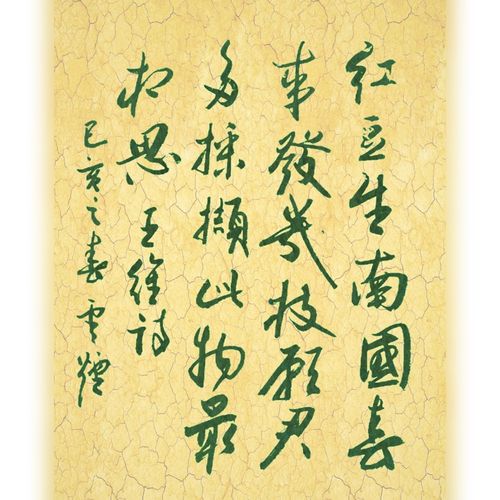 红豆生南國春
来發幾枝願君
多採擷此物最
相思 王維詩
己亥之春雲煙